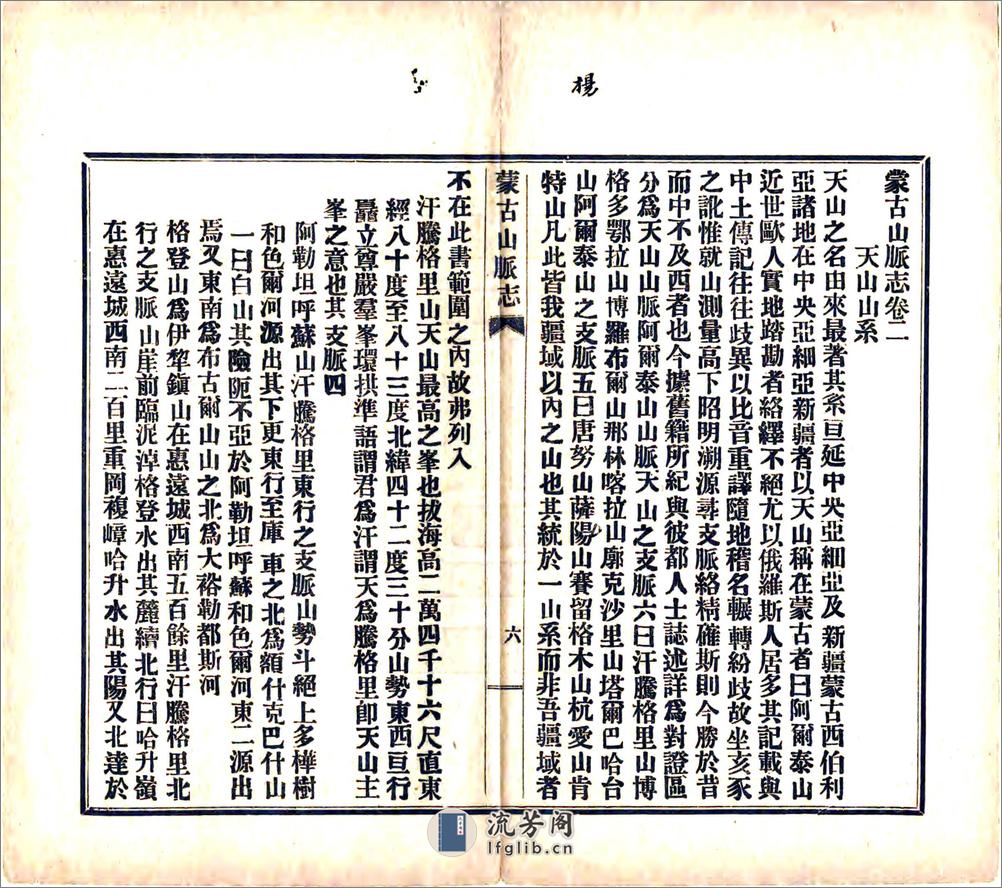 楊
蒙古山脈志卷二
天山山系
天山之名由來最著其系亘延中央亞細亞及新疆蒙古西伯利
亞諸地在中央亞細亞新疆者以天山稱在蒙古者曰阿爾泰山
近世歐人實地踏勘者絡繹不絕尤以俄羅斯人居多其記載與
中土傳記往往歧異以比音重譯隨地稽名輾轉紛歧故坐亥豕
之訛惟就山測量高下昭明溯源尋支脈絡精確斯則今勝於昔
而中不及西者也今據舊籍所紀與彼都人士誌述詳爲對證區
分爲天山山脈阿爾泰山山脈天山之支脈六曰汗騰格里山博
格多鄂拉山博羅布爾山那林喀拉山廓克沙里山塔爾巴哈台
山阿爾泰山之支脈五曰唐努山薩陽山賽留格木山杭愛山肯
特山凡此皆我疆域以內之山也其統於一山系而非吾疆域者
蒙古山脈志
六
不在此書範圍之內故弗列入
汗騰格里山天山最高之峯也拔海高二萬四千十六尺直東
經八十度至八十三度北緯四十二度三十分山勢東西亘行
矗立尊嚴羣峯環拱準語謂君爲汗謂天爲騰格里卽天山主
峯之意也其支脈四
阿勒坦呼蘇山汗騰格里東行之支脈山勢斗絕上多樺樹
和色爾河源出其下更東行至庫車之北爲額什克巴什山
一曰白山其險阨不亞於阿勒坦呼蘇和色爾河東二源出
焉又東南爲布古爾山山之北爲大裕勒都斯河
格登山爲伊犂鎭山在惠遠城西南五百餘里汗騰格里北
行之支脈山崖前臨泥淖格登水出其麓續北行曰哈升嶺
在惠遠城西南二百里重岡複嶂哈升水出其陽又北達於
流芳阁
lfglib.cn